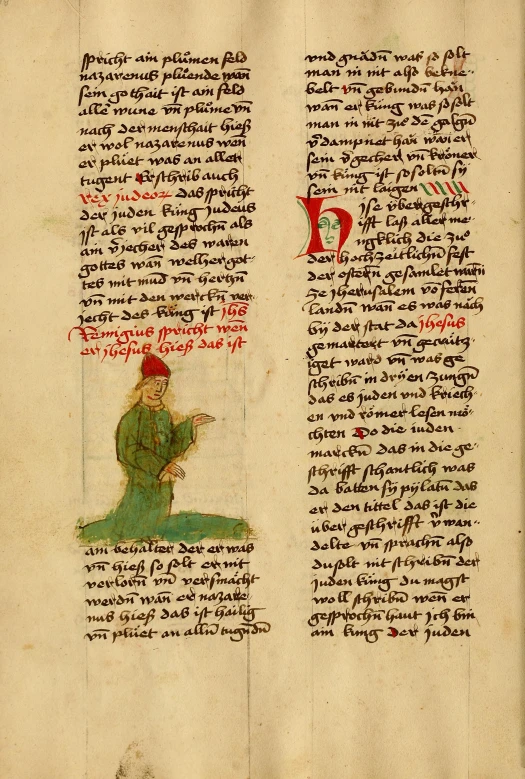 spricht ain plůmen feld
nazarenus plůende wan̄
sein gothait ist ain feld
aller wune vn̄ plůme vn̄
nach der menschait hieß
er wol nazarenus wen
er plüet was an aller
tugent Er schrib auch
rex iudeoꝝ das spricht
der iuden küng Judeus
ist als vil gesprochn̄ als
ain v̈jecher des waren
gottes wan̄ welher got-
tes mit mūd vn̄ hertzn̄
vn̄ mit den werckn̄ ver-
iecht des küng ist ihs
Remigius spricht wen
er jhesus hieß das ist
am behalter der er was
vn̄ hieß so solt er nit
verlorn̄ vn̄ versmächt
werdn̄ wan̄ er nazare-
nus hieß das ist hailig
vn̄ plüet an alln̄ tugndn̄
vnd gnādn̄ was so solt
man in nit also bekne-
belt vn̄ gebundn̄ han̄
wan̄ er küng was so solt
man in nit zuͦ de galgn̄
v̈dampnet han̄ wan̄ er
sein v̈gecher vn̄ kröner
vn̄ küng ist so soltn̄ sy
sein nit laigen
Dise v̈bergeschr-
ifft laß aller me-
ngklich die zuͦ
der hochzeitlichn̄ fest
der ostern̄ gesamlet warn̄
ze jherusalem vo ferren
landn̄ wan̄ es was nach
bÿ der stat da jhesus
gemartert vn̄ gecraitz-
iget ward vn̄ was ge
schribn̄ in drÿen zungn̄
das es juden vnd kriech-
en vnd römer lesen mö-
chten Do die iuden
marckn̄ das in die ge-
schrifft schantlich was
da batten sÿ pÿlatu̅ das
er den tittel das ist die
über geschrifft v̈wan-
delte vn̄ sprachn̄ also
du solt nit schribn̄ der
juden küng du magst
woll schribn̄ wen er
gesprochn̄ haut ich bin
ain küng Der juden